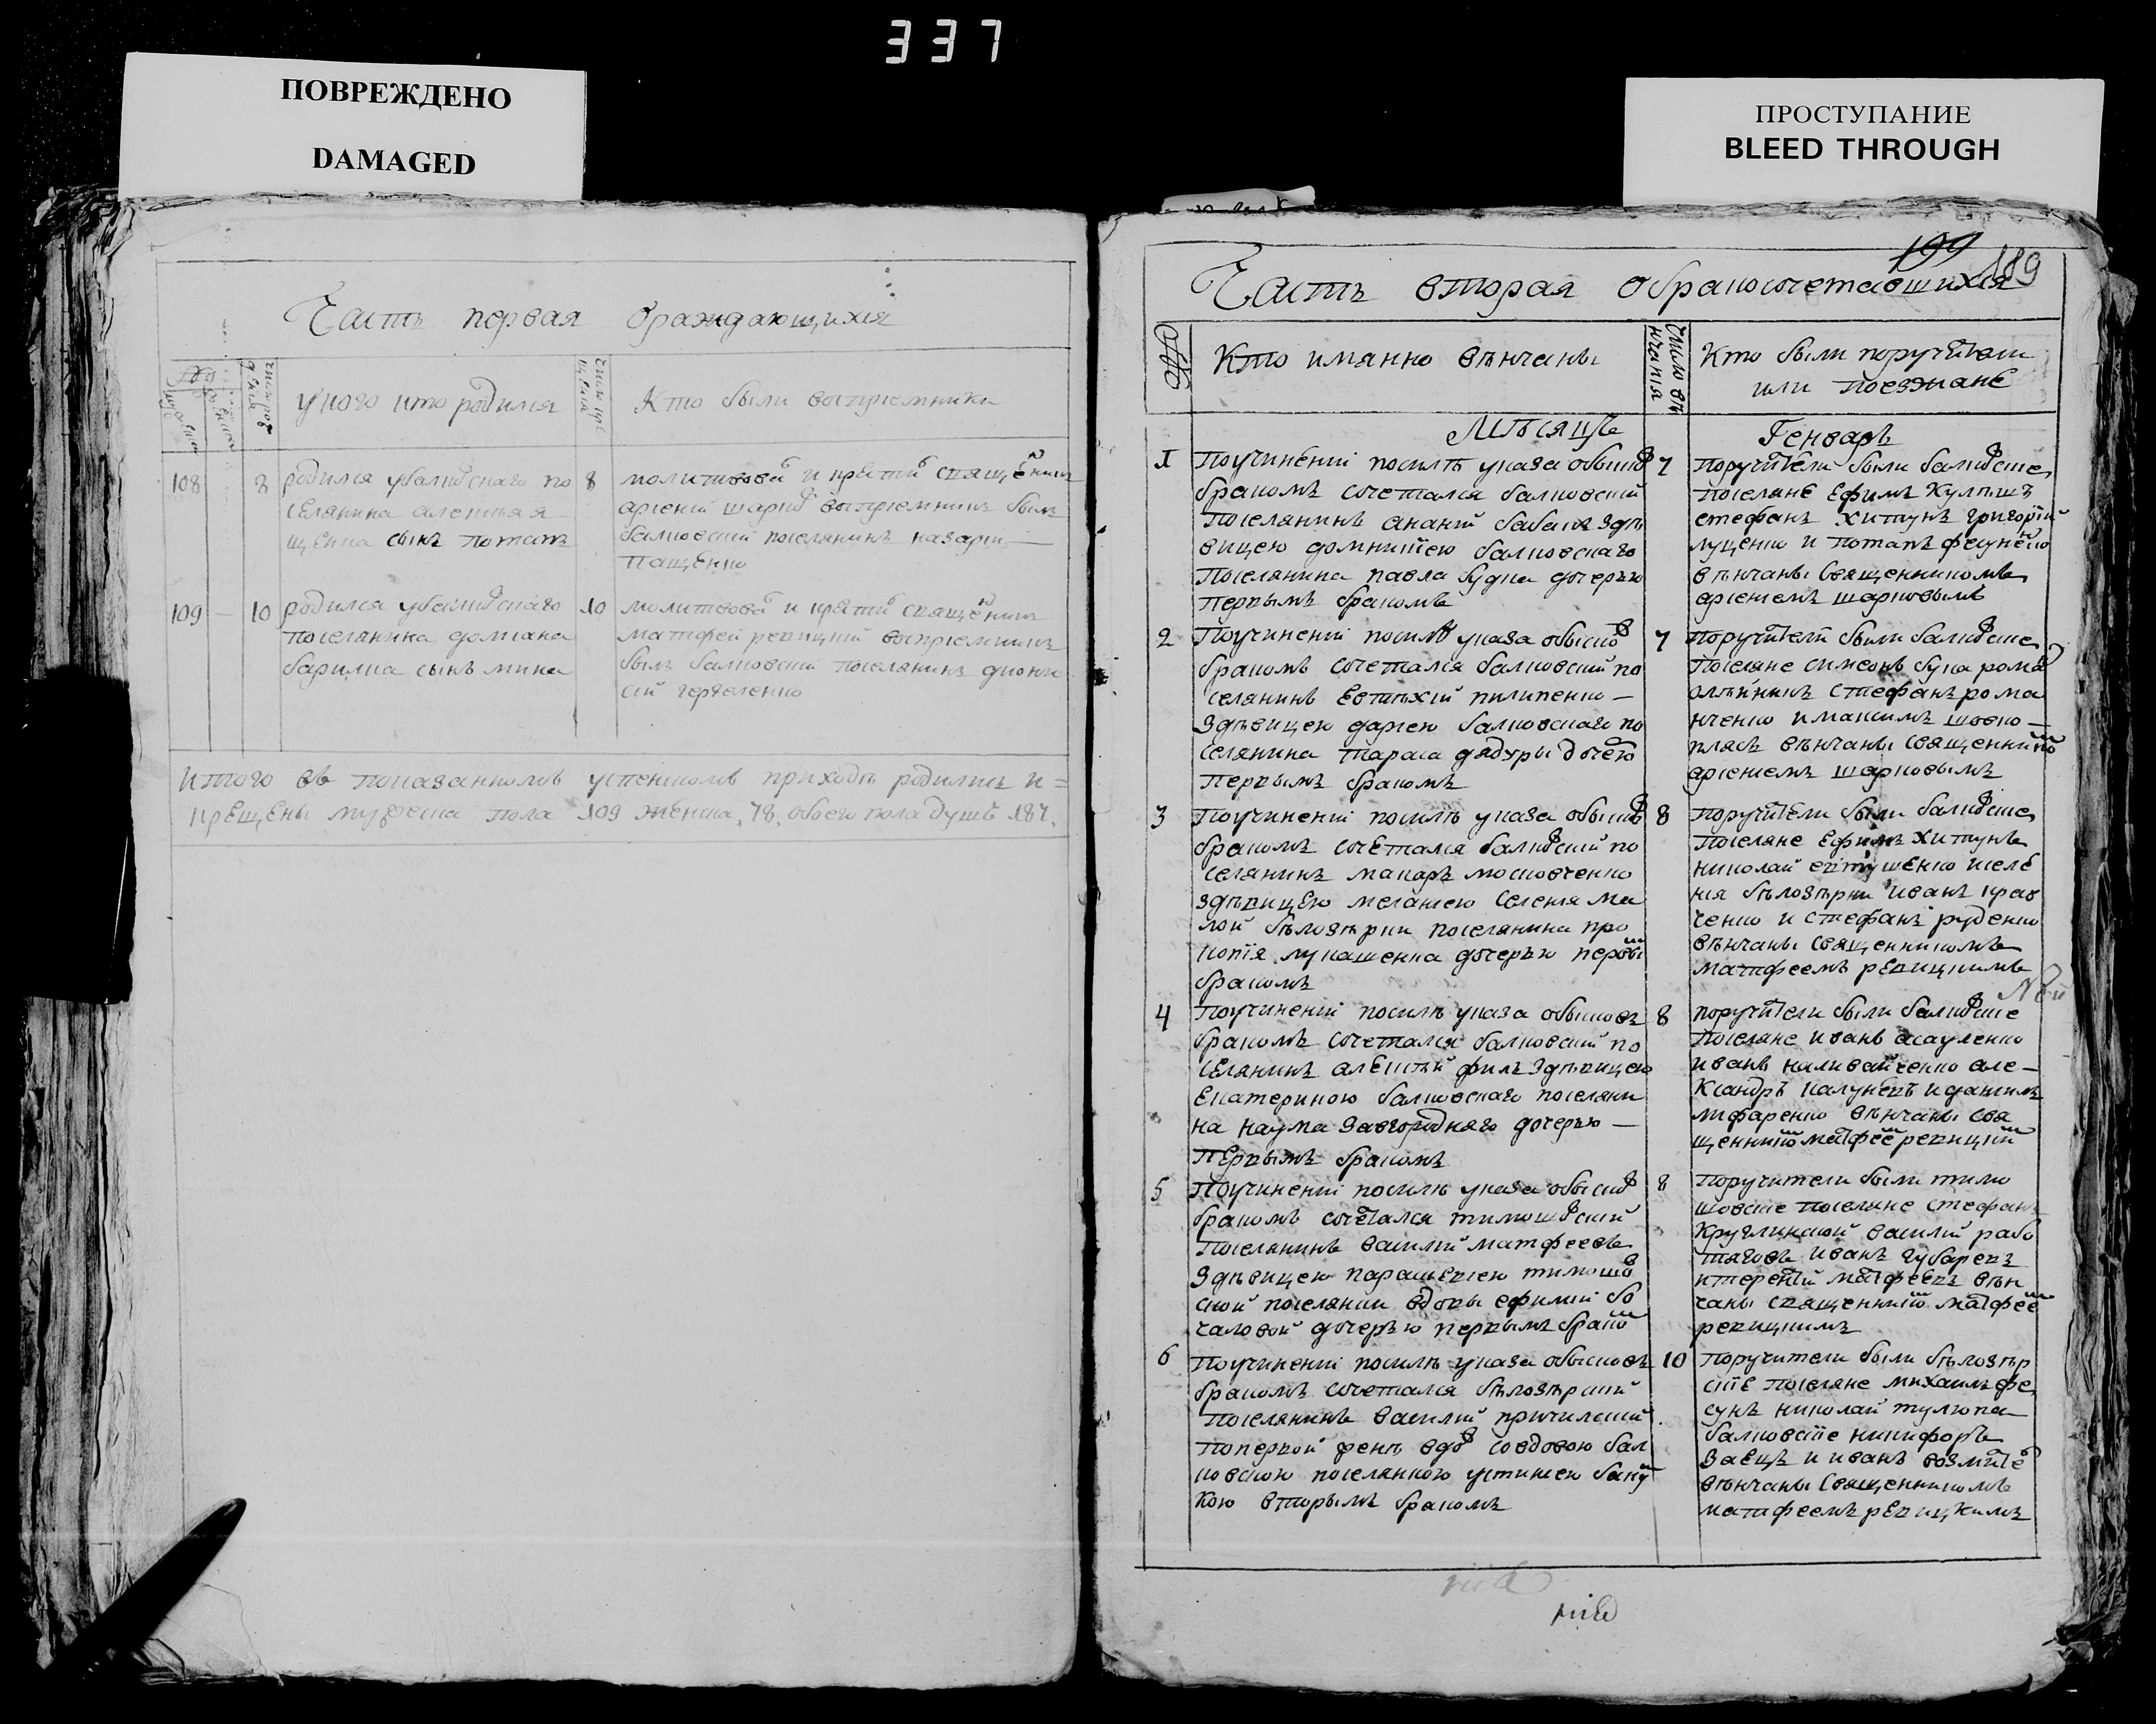 337
ПОВРЕЖДЕНО
DAMAGED
ПРОСТУПАНИЕ
BLEED THROUGH
Часть первая ораждающихся
укого кто родился
Кто были восприемники
108
8
родился убалковскаго по
селянина алексѣя
щенка сынъ потапъ
8
молитвовал и крестил священникъ
арсений шарков восприемникъ былъ
балковский поселянинъ назарий
пащенко
109
10
родился убалковскаго
поселянина домиана
барилка сынъ мина
10
молитвовал и крестил священникъ
матфей ревицкий восприемникъ
былъ балковский поселянинъ диони
сий
Итого въ показанномъ успенскомъ приходѣ родились и=
крещены мужеска пола 109 женска, 78, обоего пола душъ 187,
199 189
Часть вторая обракосочетавшихся
Кто имянно вѣнчаны
Число вѣ
нчанія
Кто были поручители
или поезжанѣ
Мѣсяцъ Генварь
1
Поучинении посилѣ указа обысков
бракомъ сочетался балковский
поселянинъ ананий бабакъ здѣ
вицею домникиею балковскаго
поселянина павла будка дочерью
первымъ бракомъ
7
поручители были балковские
поселянѣ Ефимъ Кулишъ
стефанъ хитунъ григорий
луценко и потапъ фесуненко
вѣнчаны священникомъ
арсениемъ шарковымъ
2
Поучинении посилѣ указа обысков
бракомъ сочетался балковский по
селянинъ Евтихий пилипенко —
здѣвицею дариею балковскаго по
селянина тараса дядуры дочерю
первымъ бракомъ
7
поручители были балковские
поселяне симеонъ бука роман
олѣйникъ стефанъ рома
нченко и максимъ шовко —
плясъ вѣнчаны священником
арсениемъ шарковымъ
3
Поучинении посилѣ указа обысков
бракомъ сочетался балковский по
селянинъ макаръ московченко
здѣвицею меланиею селения ма
лой бѣлозѣрки поселянина про
копія лукашенка дочерью первым
бракомъ
8
поручители были балковские
поселяне Ефимъ хитунъ
николай евтушенко иселе
ния бѣлозѣрки иванъ крав
ченко и стефанъ руденко
вѣнчаны священникомъ
матфеемъ ревицкимъ
4
Поучинении посилѣ указа обысковъ
бракомъ сочетался балковский по
селянинъ алексѣй филь здѣвицею
Екатериною балковскаго поселяни
на наума завгороднаго дочерью —
первымъ бракомъ
8
поручители были балковские
поселяне иванъ асауленко
иванъ наливайченко але —
ксандръ калунецъ идании­лъ
лифаренко вѣнчаны свя
щенником матфеем ревицким
5
Поучинении посилѣ указа обысков
бракомъ сочетался тимошовский
поселянинъ василий матфеевъ
здѣвицею параскевиею тимошов
ской поселянки вдовы ефимии бо
чаловой дочерью первымъ браком
8
Поручители были тимо
шовские поселяне стефанъ
Круглинской василий рабо
тяговъ иванъ губаревъ
итерентий матфеевъ вѣн
чаны священником матфеем
ревицкимъ
6
Поучинении посилѣ указа обысковъ
бракомъ сочетался бѣлозѣрский
поселянинъ василий
поперкой женѣ вдов совдовою бал
ковскою поселянкою устиниею
кою вторымъ бракомъ
10
поручители были бѣлозѣр
скіе поселяне михаилъ фе
сунъ николай тулюпа
балковскіе никифоръ
Заецъ и иванъ
вѣнчаны священникомъ
матфеемъ ревицкимъ